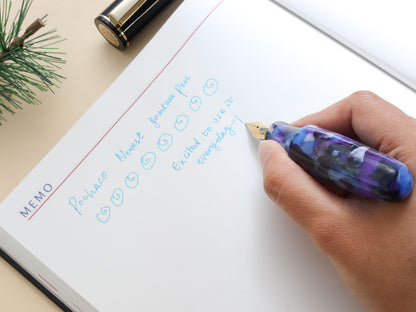 MEMO
Pochaco Newest fountain pen
Excited to use it
everyday~!